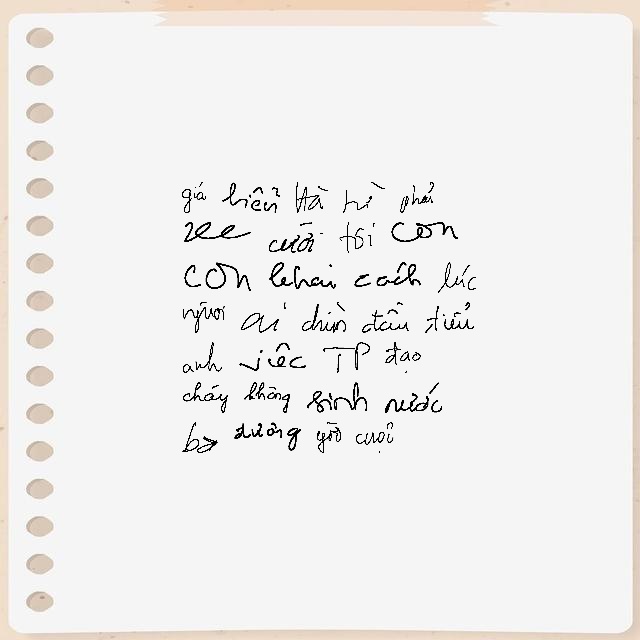 giá biển Hà hì phải
xe cưới tôi con
con khai cách lúc
người ai chìm dân tiểu
anh việc TP đạo
cháy không sinh nước
bà đường giờ cười